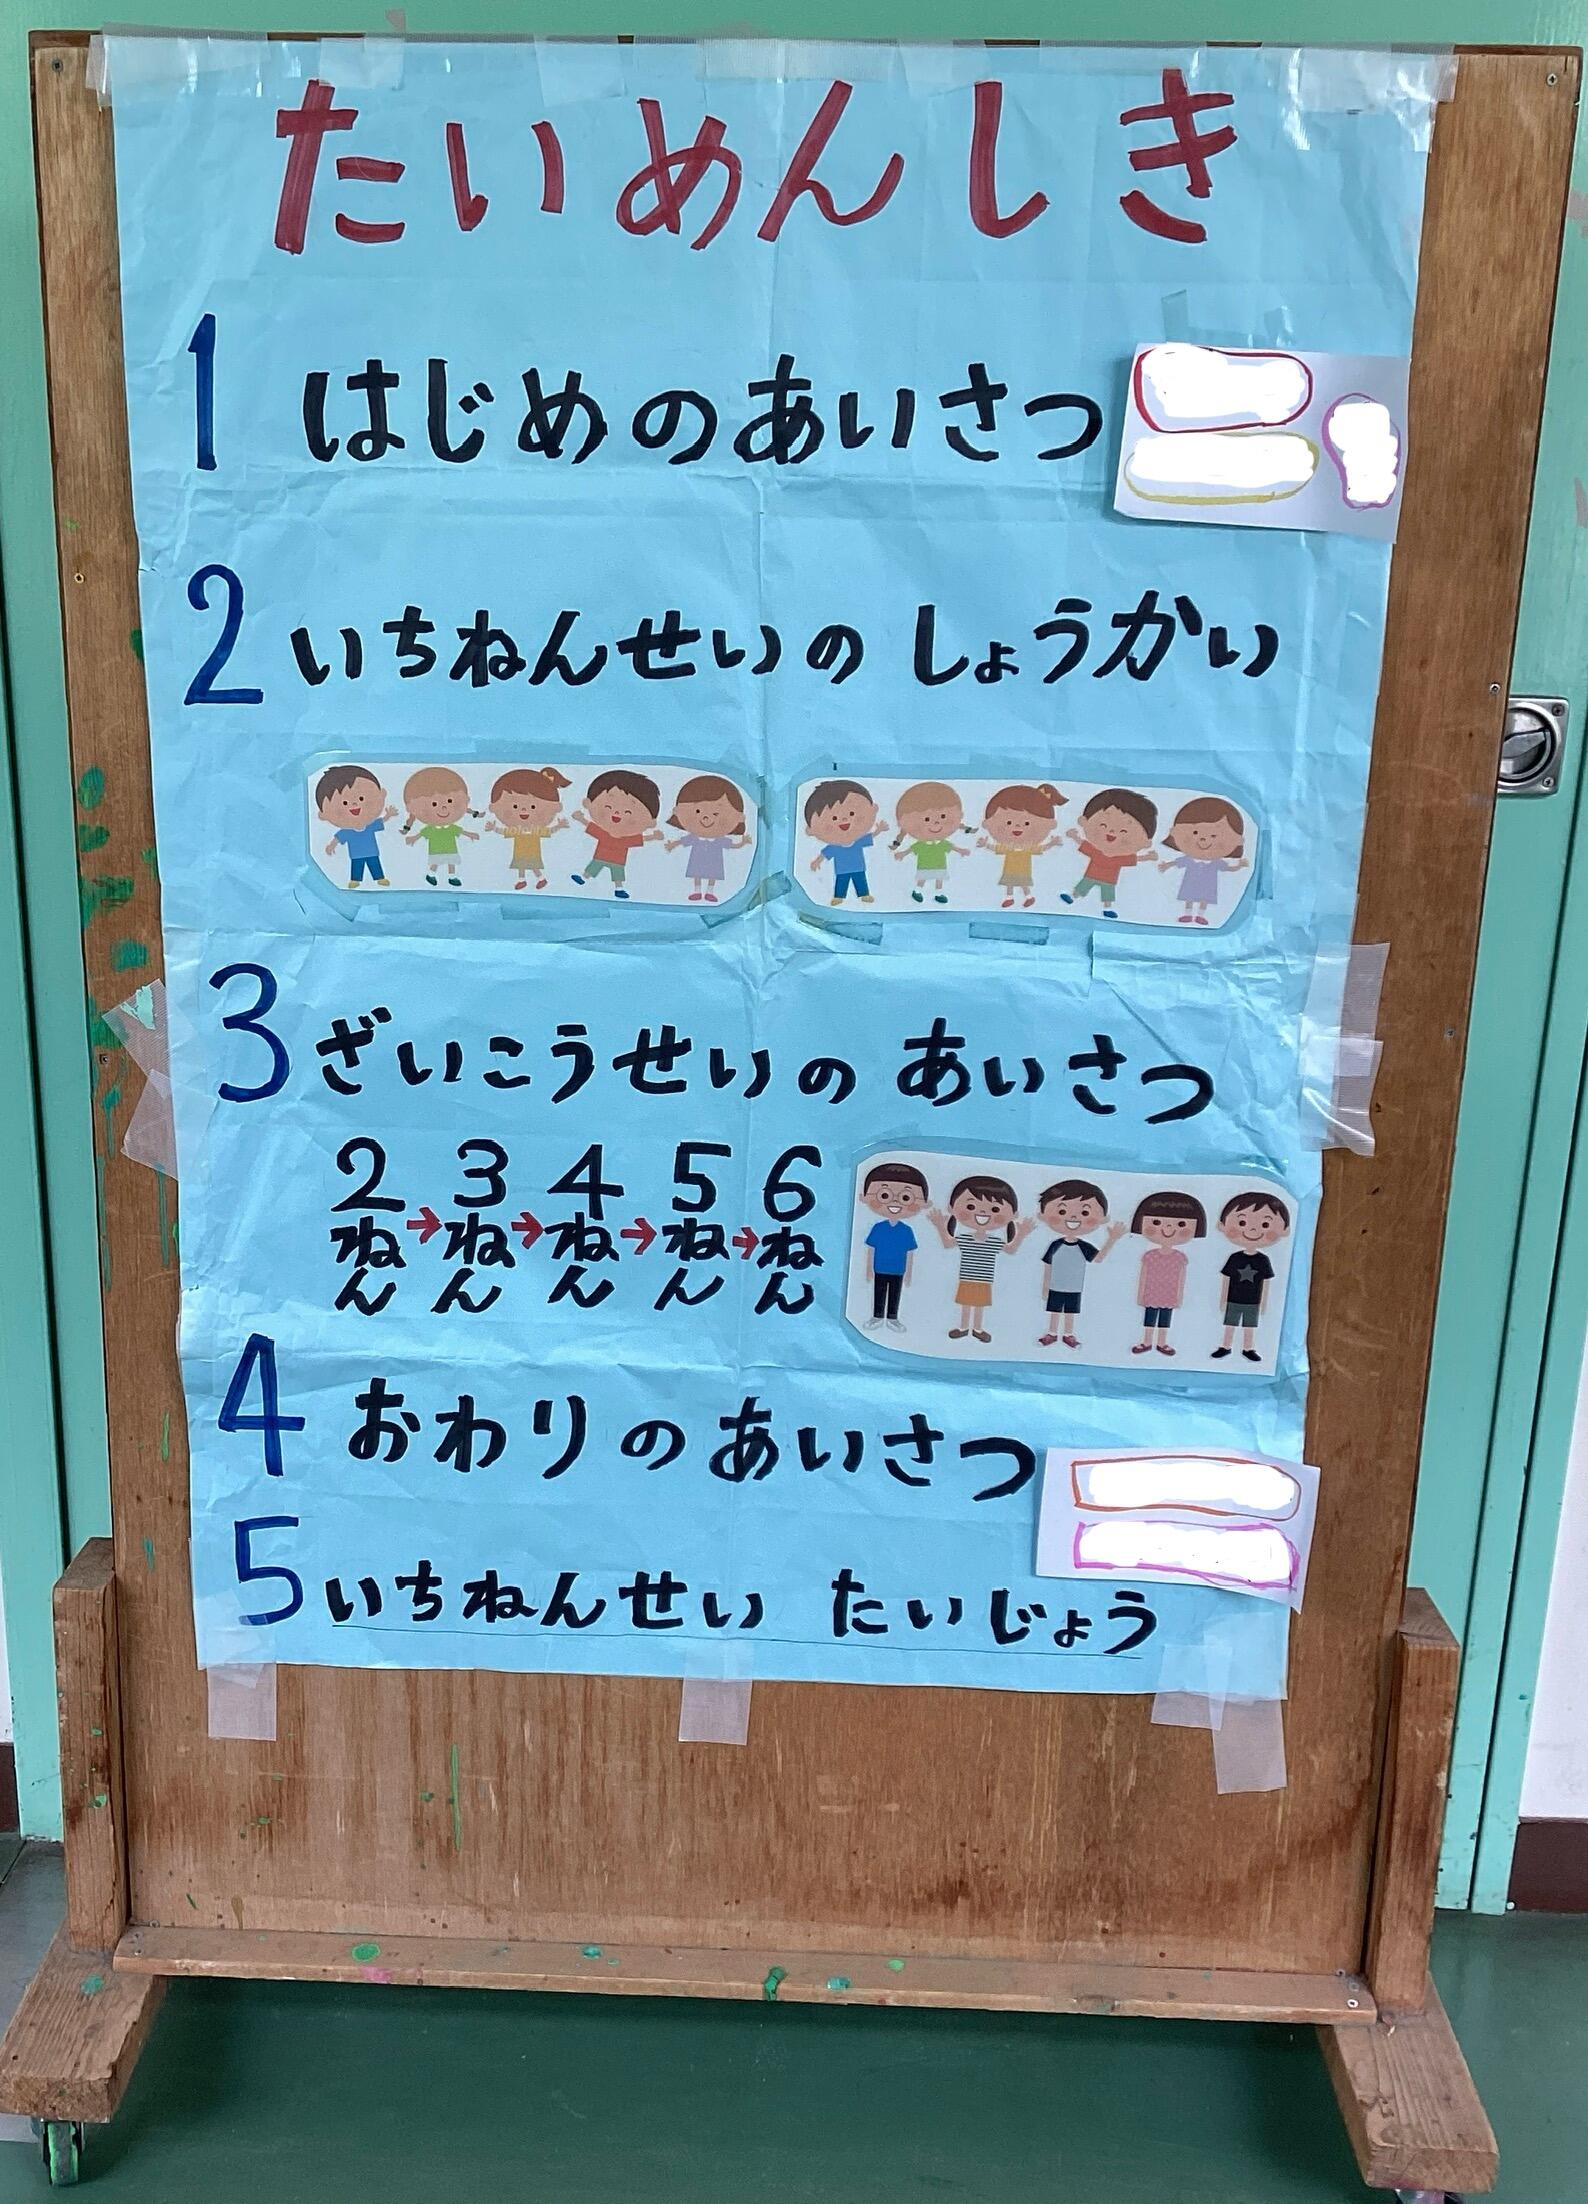 たいめんしき
1 はじめのあいさつ
2 いちねんせいの しょうかい
3 ざいこうせいの あいさつ
2ねん→3ねん→4ねん→5ねん→6ねん
4 おわりのあいさつ
5 いちねんせい たいじょう